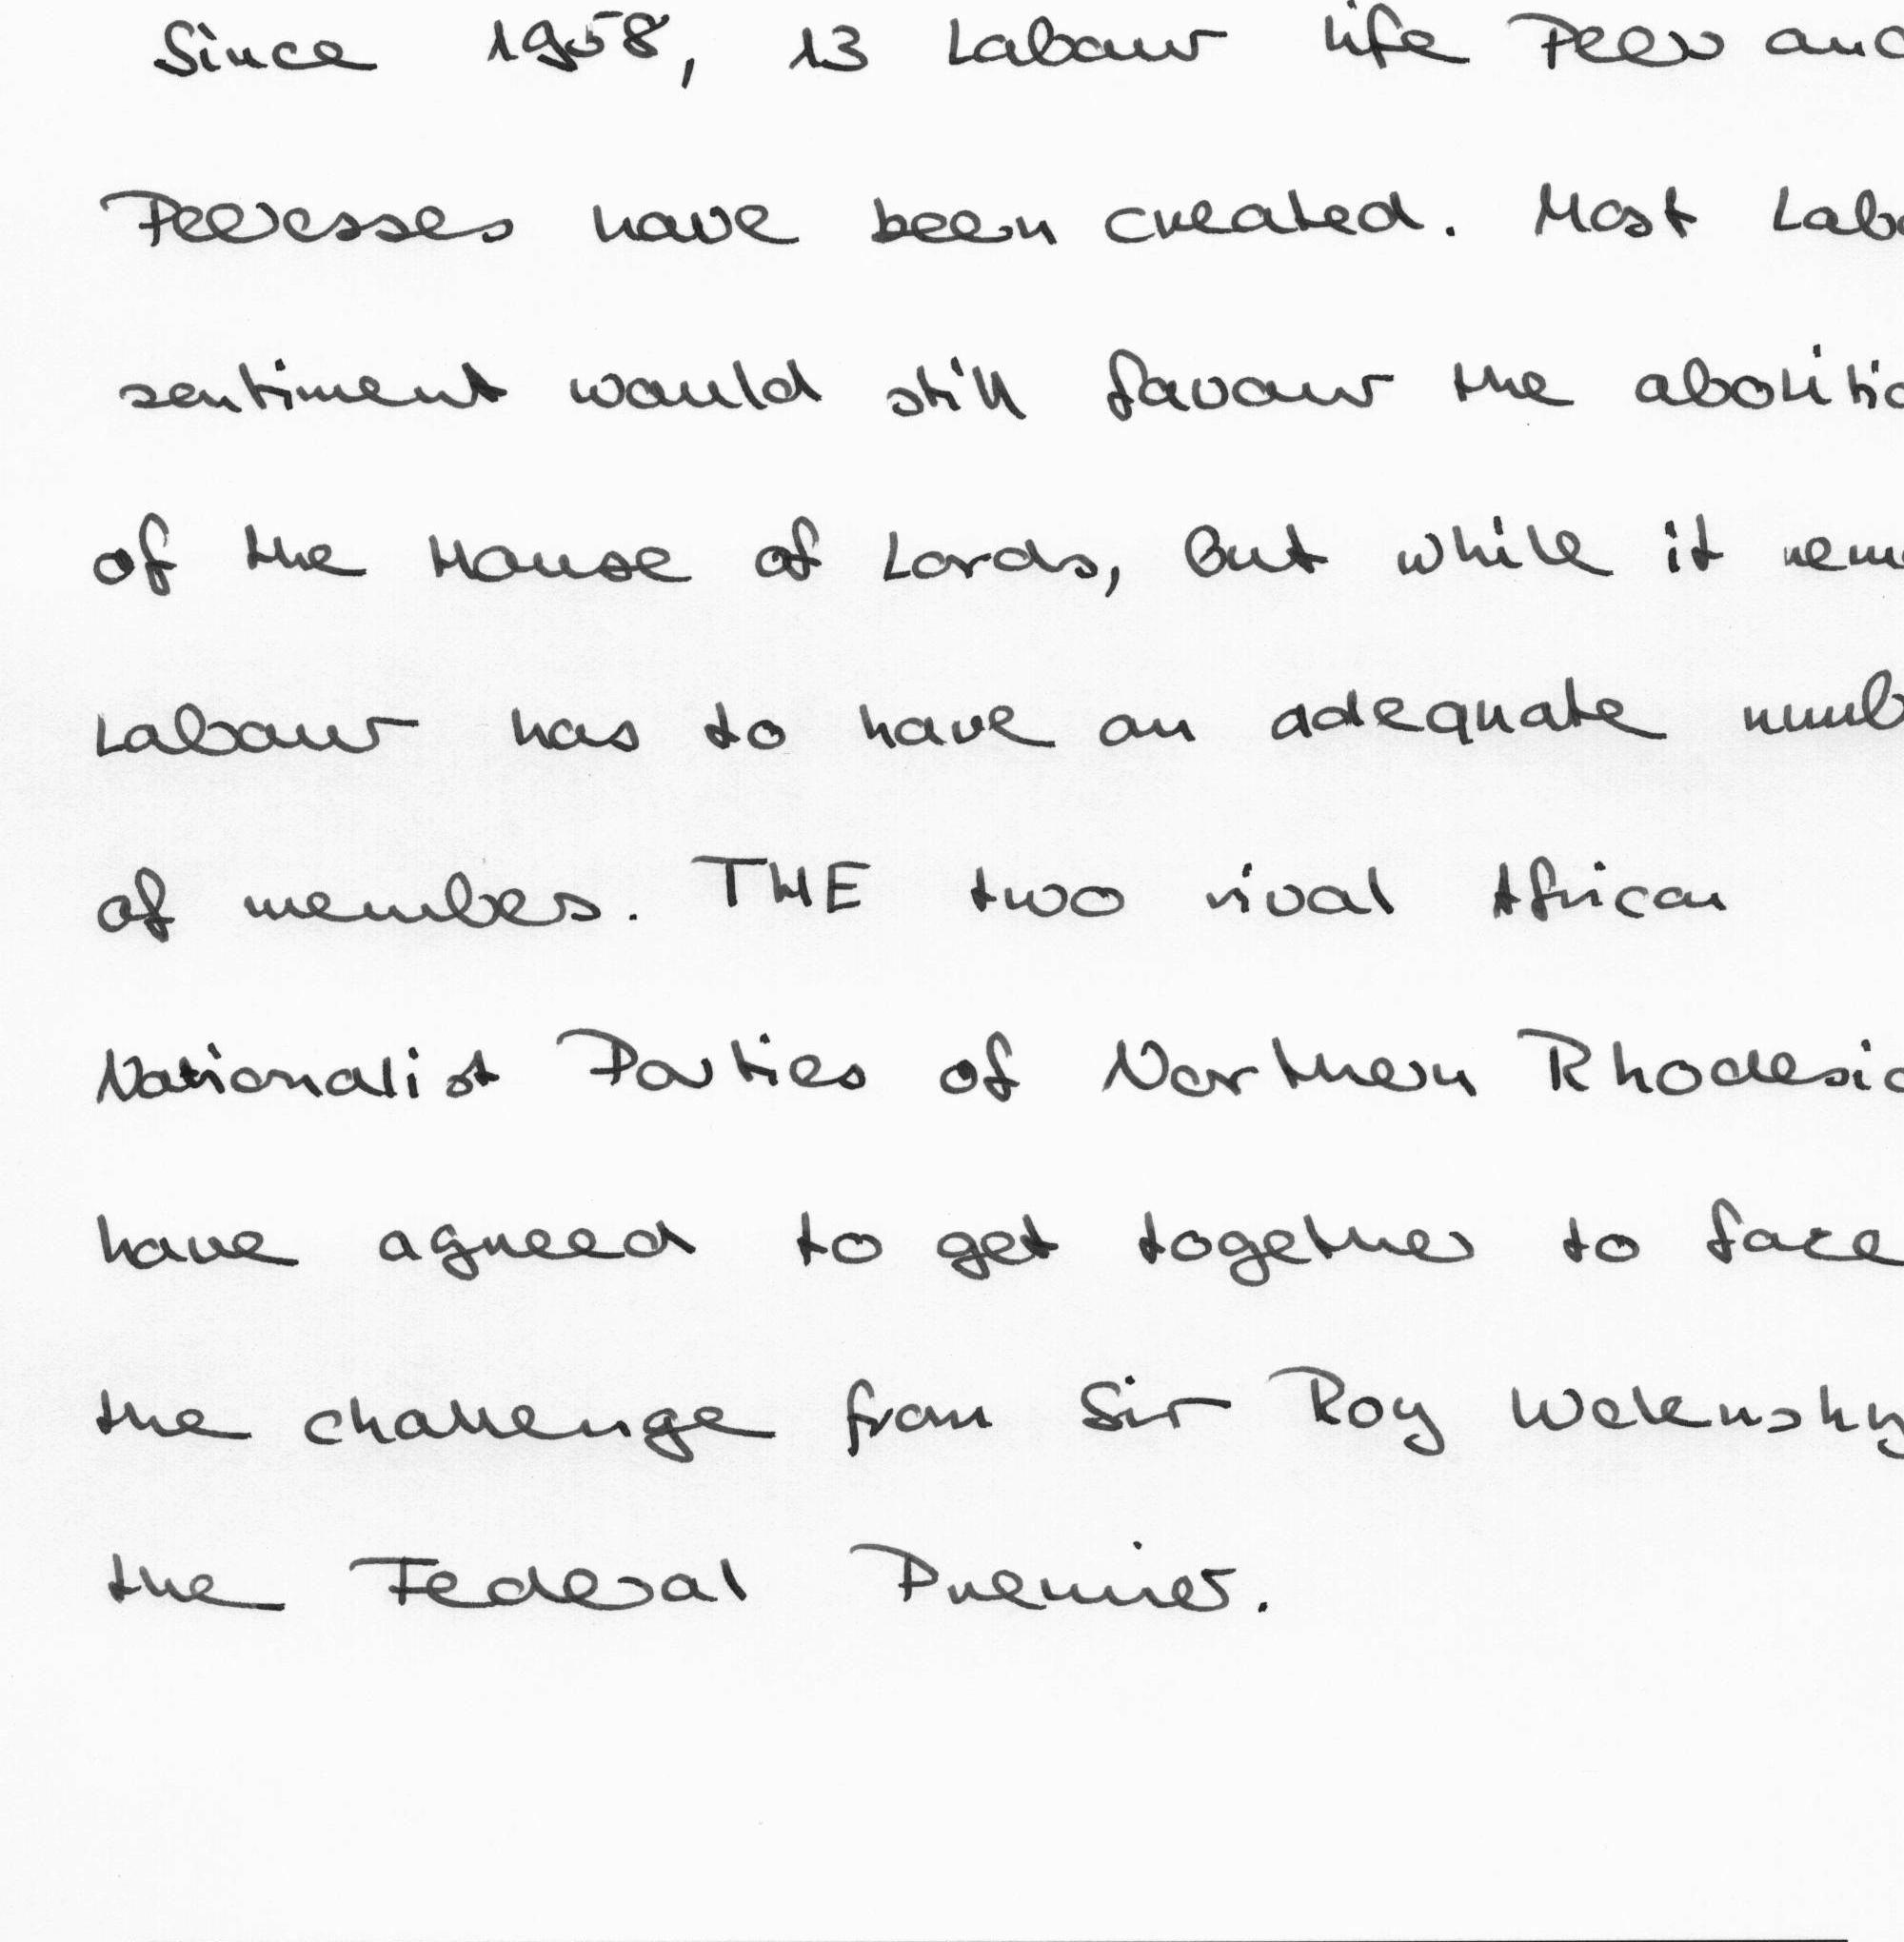 Since 1958, 13 Labour life Peers and
Peeresses have been created. Most Lab
sentiment would still favour the abolitio
of the House of Lords, but while it rem
Labour has to have an adequate numb
of members. THE two rival African
Nationalist Parties of Northern Rhodesia
have agreed to get together to face
the challenge from Sir Roy Welensky
the Federal Premier.